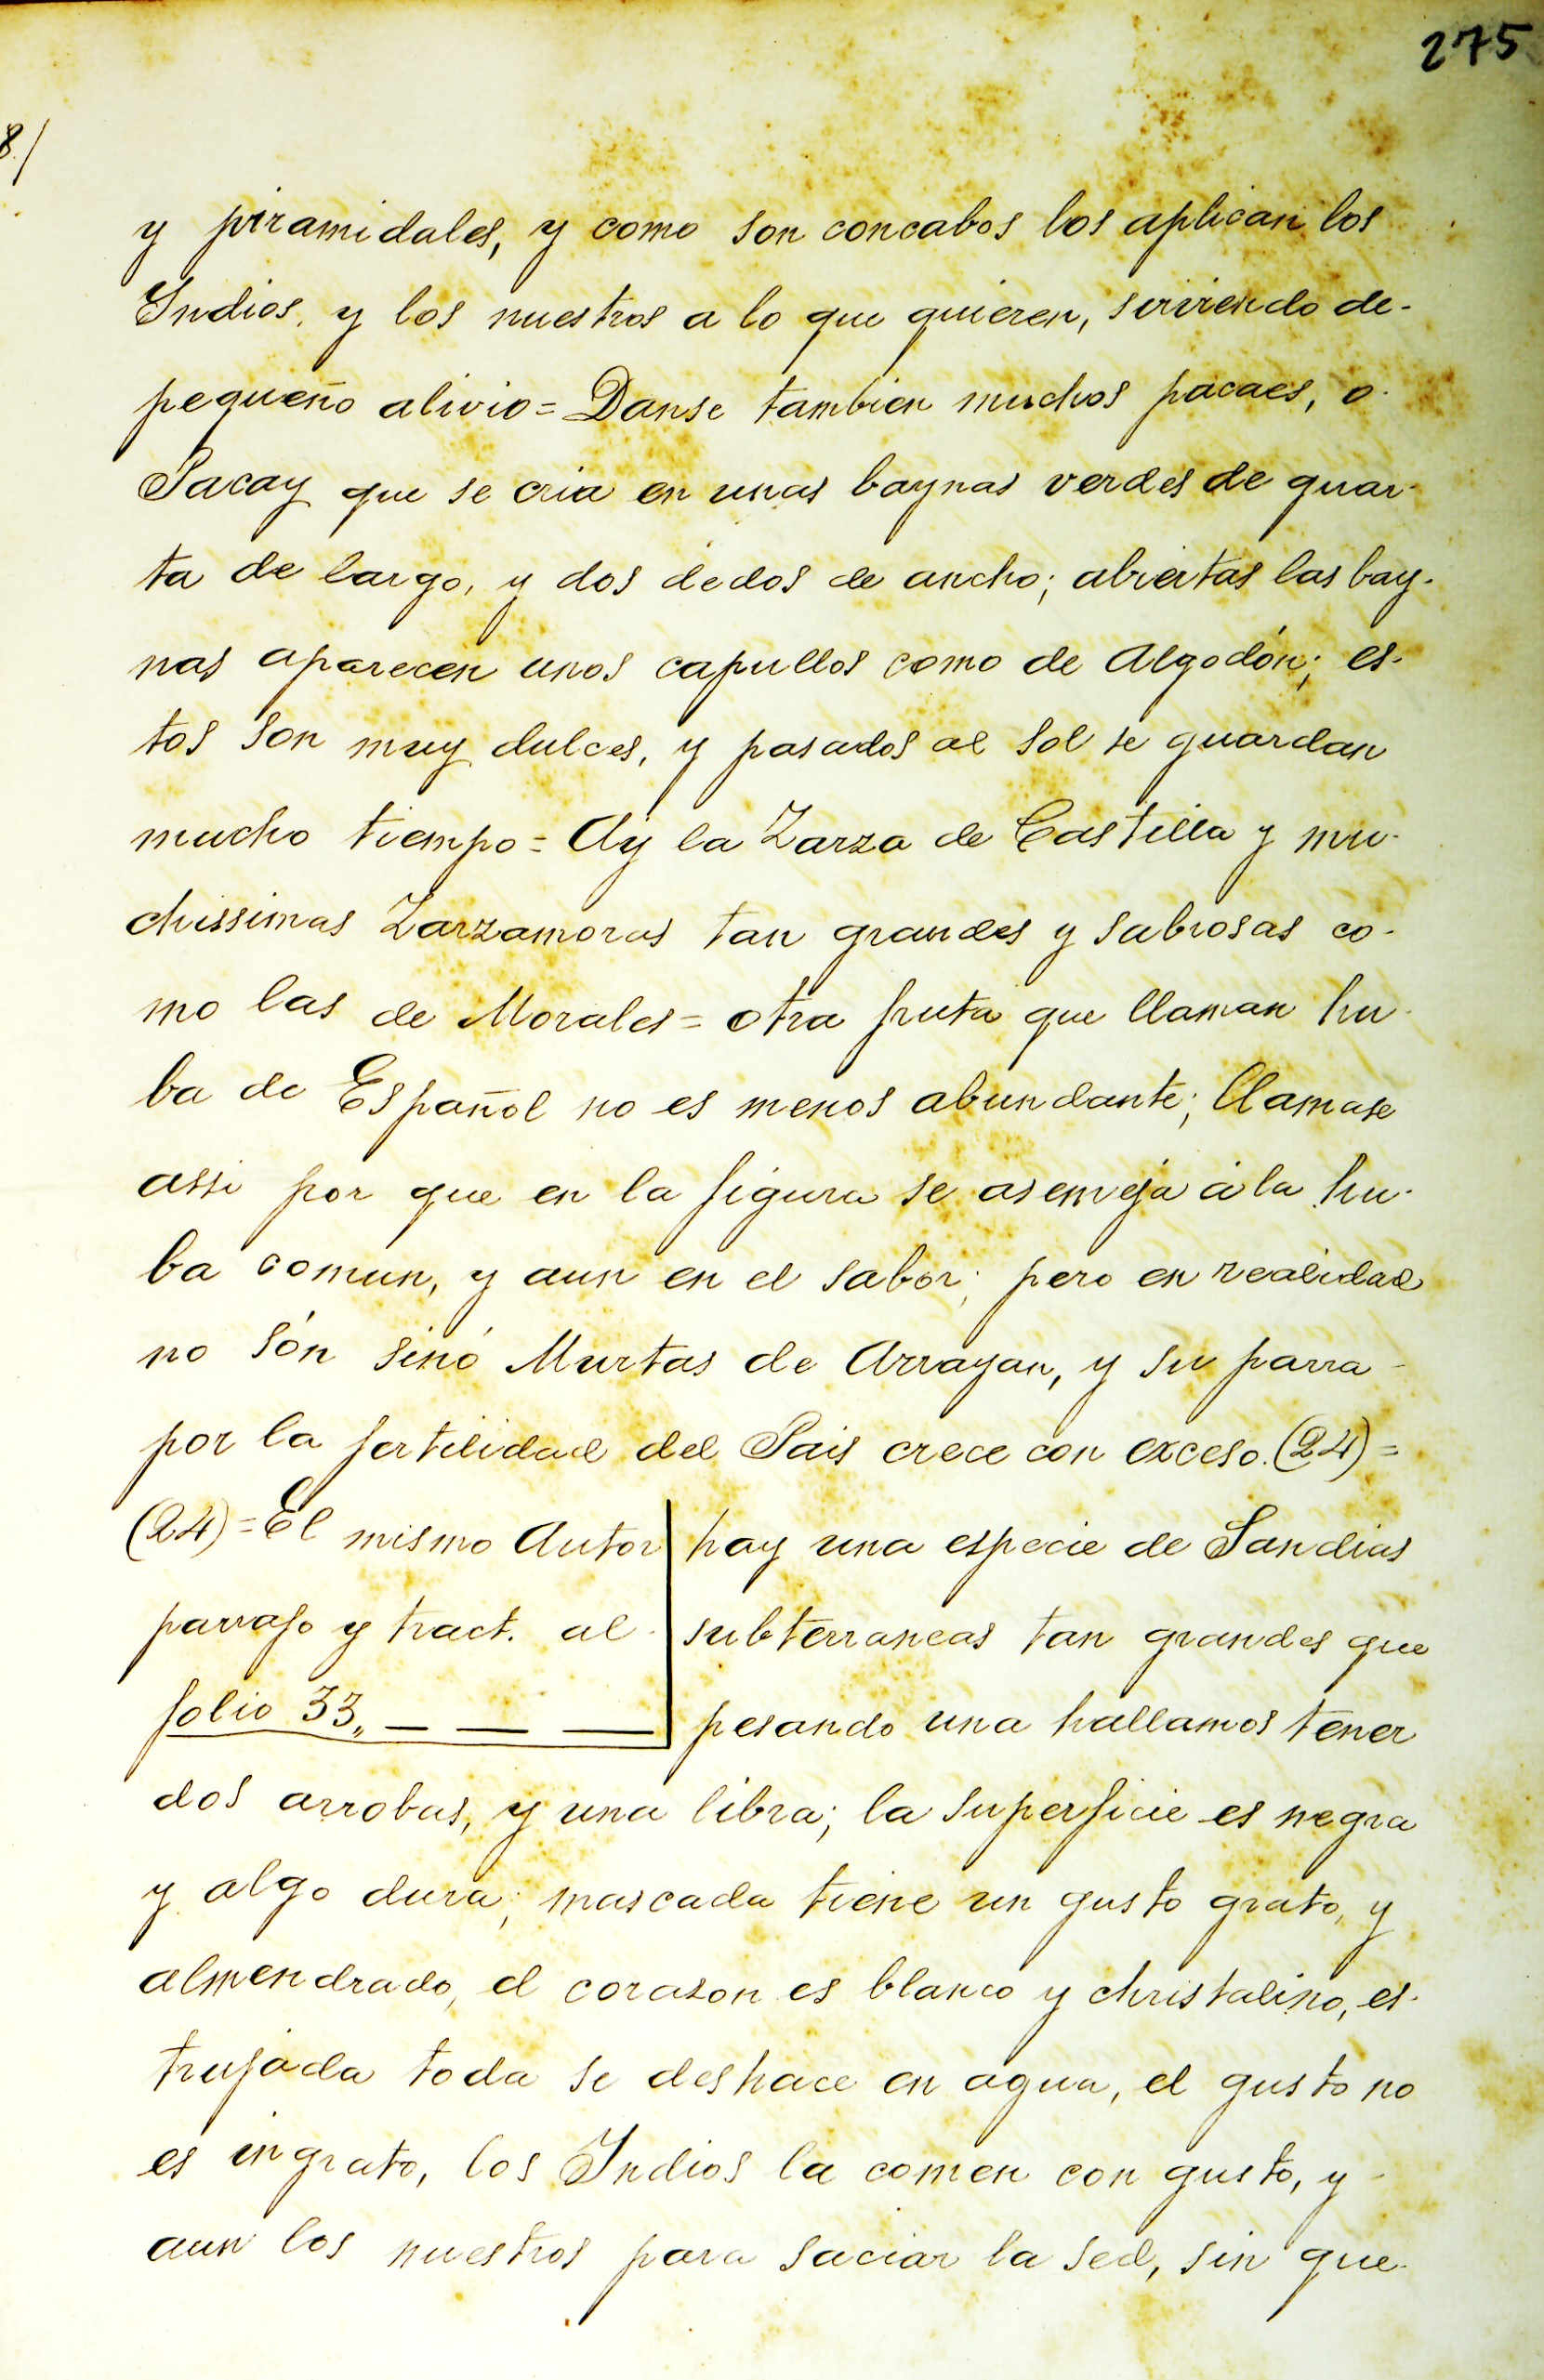 275
8/
y piramidales, y como son concabos los aplican los
Indios, y los nuestros a lo que quieren, sirviendo de-
pequeño alivio = Danse tambien muchos pacaes, o-
Pacay que se cria en unas baynas verdes de quar-
ta de largo, y dos dedos de ancho; abiertas las bay-
nas aparecen unos capullos como de Algodón; es-
tos son muy dulces, y pasados al sol se guardan
mucho tiempo = Ay la Zarza de Castilla y mu-
chissimas Zarzamoras tan grandes y sabrosas co-
mo las de Morales = otra fruta que llaman hu-
ba de Español no es menos abundante; llamase
assi por que en la figura se asemeja á la hu-
ba comun, y aun en el sabor; pero en realidad
no són sinó Murtas de Arrayan, y su parra-
por la fertilidad del Pais crece con exceso. (24) =
(24) = El mismo Autor
parrafo y tract. al-
folio 33,, — — —
hay una especie de Sandias
subterraneas tan grandes que
pesando una hallamos tener
dos arrobas, y una libra; la superficie es negra
y algo dura; mascada tiene un gusto grato, y
almendrado, el corazon es blanco y christalino, es-
trujada toda se deshace en agua, el gusto no
es ingrato, los Indios la comen con gusto, y-
aun los nuestros para saciar la sed, sin que-